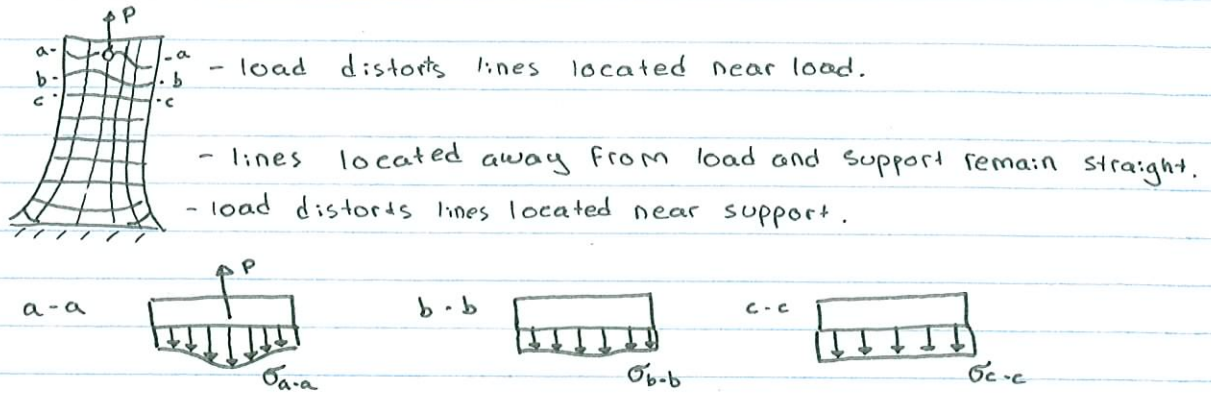 P
a- -a - load distorts lines located near load.
b- -b
c- -c
- lines located away from load and support remain straight.
- load distorts lines located near support.
P
a-a b-b c-c
σa-a σb-b σc-c